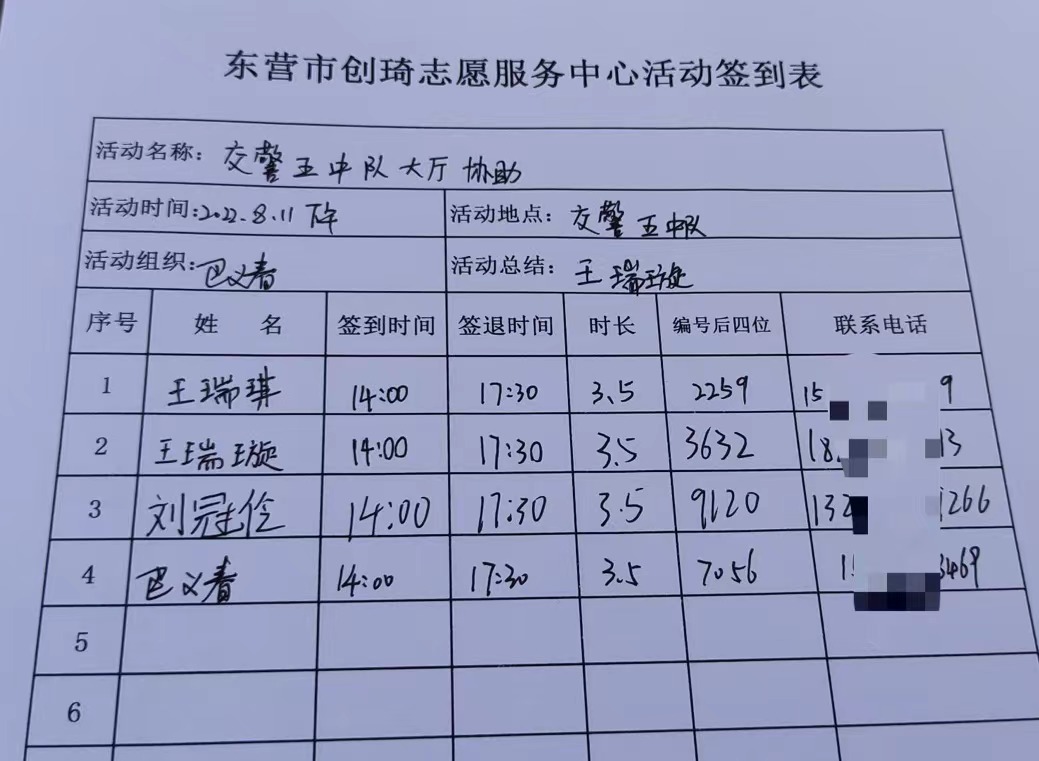 东营市创琦志愿服务中心活动签到表
活动名称：交警五中队大厅协助
活动时间：2022.8.11 下午 活动地点：交警五中队
活动组织：巴义春 活动总结：王瑞璇
序号 姓 名 签到时间 签退时间 时长 编号后四位 联系电话
1 王瑞琪 14:00 17:30 3.5 2259 15 9
2 王瑞璇 14:00 17:30 3.5 3632 18 13
3 刘冠伶 14:00 17:30 3.5 9120 132 1266
4 巴义春 14:00 17:30 3.5 7056 1 3469
5
6